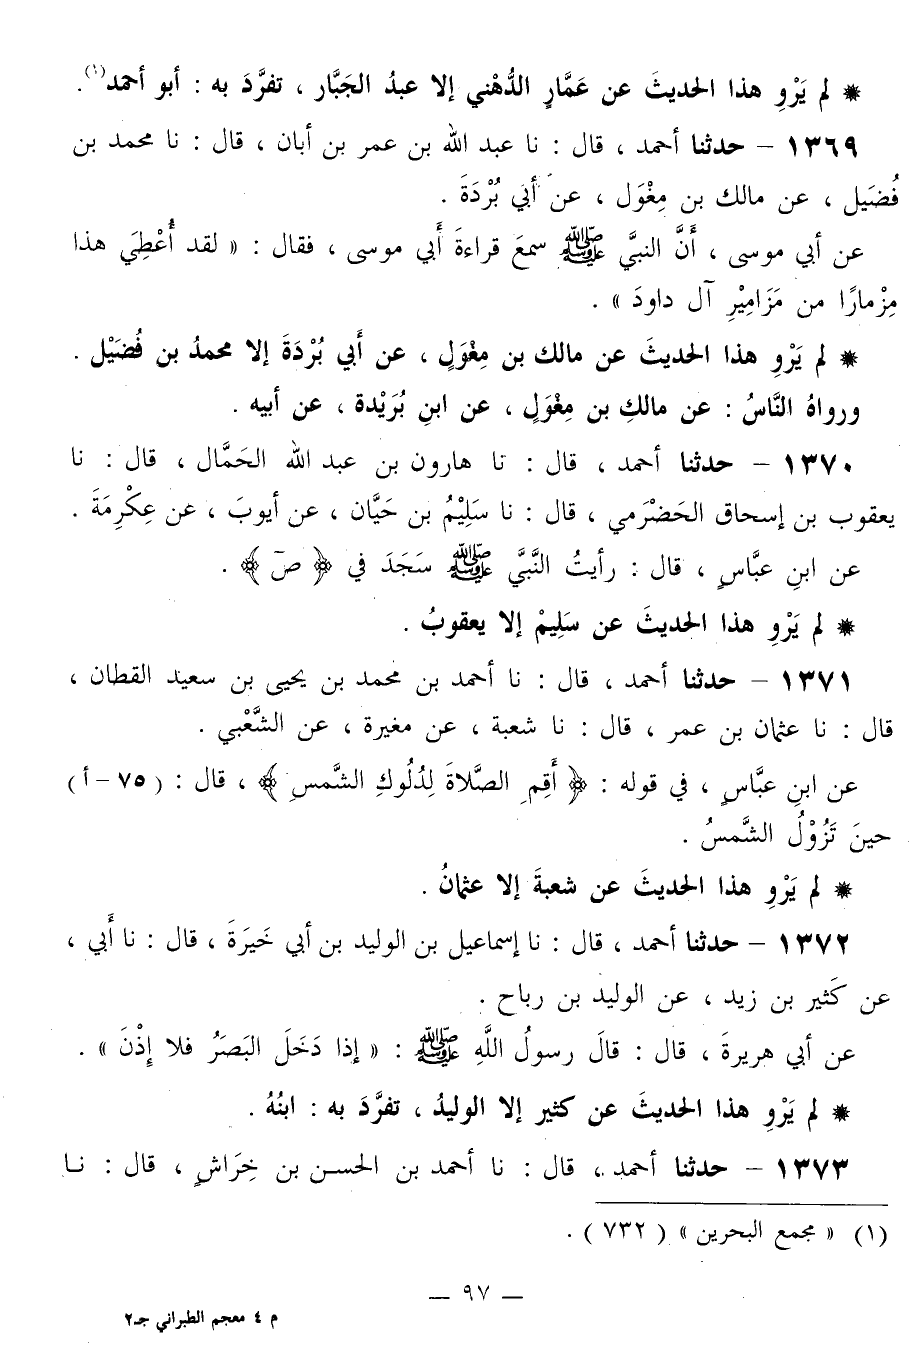 * لم يَرْوِ هذا الحديثَ عن عَمَّارٍ الدُّهْني إلا عبدُ الجَبَّار ، تفرَّدَ به : أبو أحمد(١).
١٣٦٩ – حدثنا أحمد ، قال : نا عبد الله بن عمر بن أبان ، قال : نا محمد بن
فُضَيل ، عن مالك بن مِغْوَل ، عن أبي بُرْدَةَ .
عن أبي موسى ، أَنَّ النبيَّ ﷺ سمعَ قراءةَ أَبي موسى ، فقال : « لقد أُعْطِيَ هذا
مِزْمارًا من مَزَامِيْرِ آل داودَ » .
* لم يَرْوِ هذا الحديثَ عن مالك بن مِغْوَلٍ ، عن أَبي بُرْدَةَ إلا محمدُ بن فُضَيْل .
ورواهُ النَّاسُ : عن مالكِ بن مِغْوَلٍ ، عن ابنِ بُرَيْدة ، عن أبيه .
١٣٧٠ – حدثنا أحمد ، قال : نا هارون بن عبد الله الحَمَّال ، قال : نا
يعقوب بن إسحاق الحَضْرَمي ، قال : نا سَلِيْمُ بن حَيَّان ، عن أيوبَ ، عن عِكْرِمَةَ .
عن ابنِ عبَّاسٍ ، قال : رأيتُ النَّبيَّ ﷺ سَجَدَ في ﴿ صٓ ﴾ .
* لم يَرْوِ هذا الحديثَ عن سَلِيمْ إلا يعقوبُ .
١٣٧١ – حدثنا أحمد ، قال : نا أحمد بن محمد بن يحيى بن سعيد القطان ،
قال : نا عثمان بن عمر ، قال : نا شعبة ، عن مغيرة ، عن الشَّعْبي .
عن ابنِ عبَّاسٍ ، في قوله : ﴿ أَقِمِ الصَّلاةَ لِدُلُوكِ الشَّمسِ ﴾ ، قال : ( ٧٥ – أ )
حينَ تَزُوْلُ الشَّمسُ .
* لم يَرْوِ هذا الحديثَ عن شعبةَ إلا عثمانُ .
١٣٧٢ – حدثنا أحمد ، قال : نا إسماعيل بن الوليد بن أبي خَيرَةَ ، قال : نا أَبي ،
عن كَثير بن زيد ، عن الوليد بن رباح .
عن أبي هريرةَ ، قال : قالَ رسولُ اللَّهِ ﷺ : « إذا دَخَلَ البَصَرُ فلا إِذْنَ » .
* لم يَرْوِ هذا الحديثَ عن كثير إلا الوليدُ ، تفرَّدَ به : ابنُهُ .
١٣٧٣ – حدثنا أحمد ، قال : نا أحمد بن الحسن بن خِرَاشٍ ، قال : نا
(١) « مجمع البحرين » ( ٧٣٢ ) .
— ٩٧ —
م ٤ معجم الطبراني جـ٢